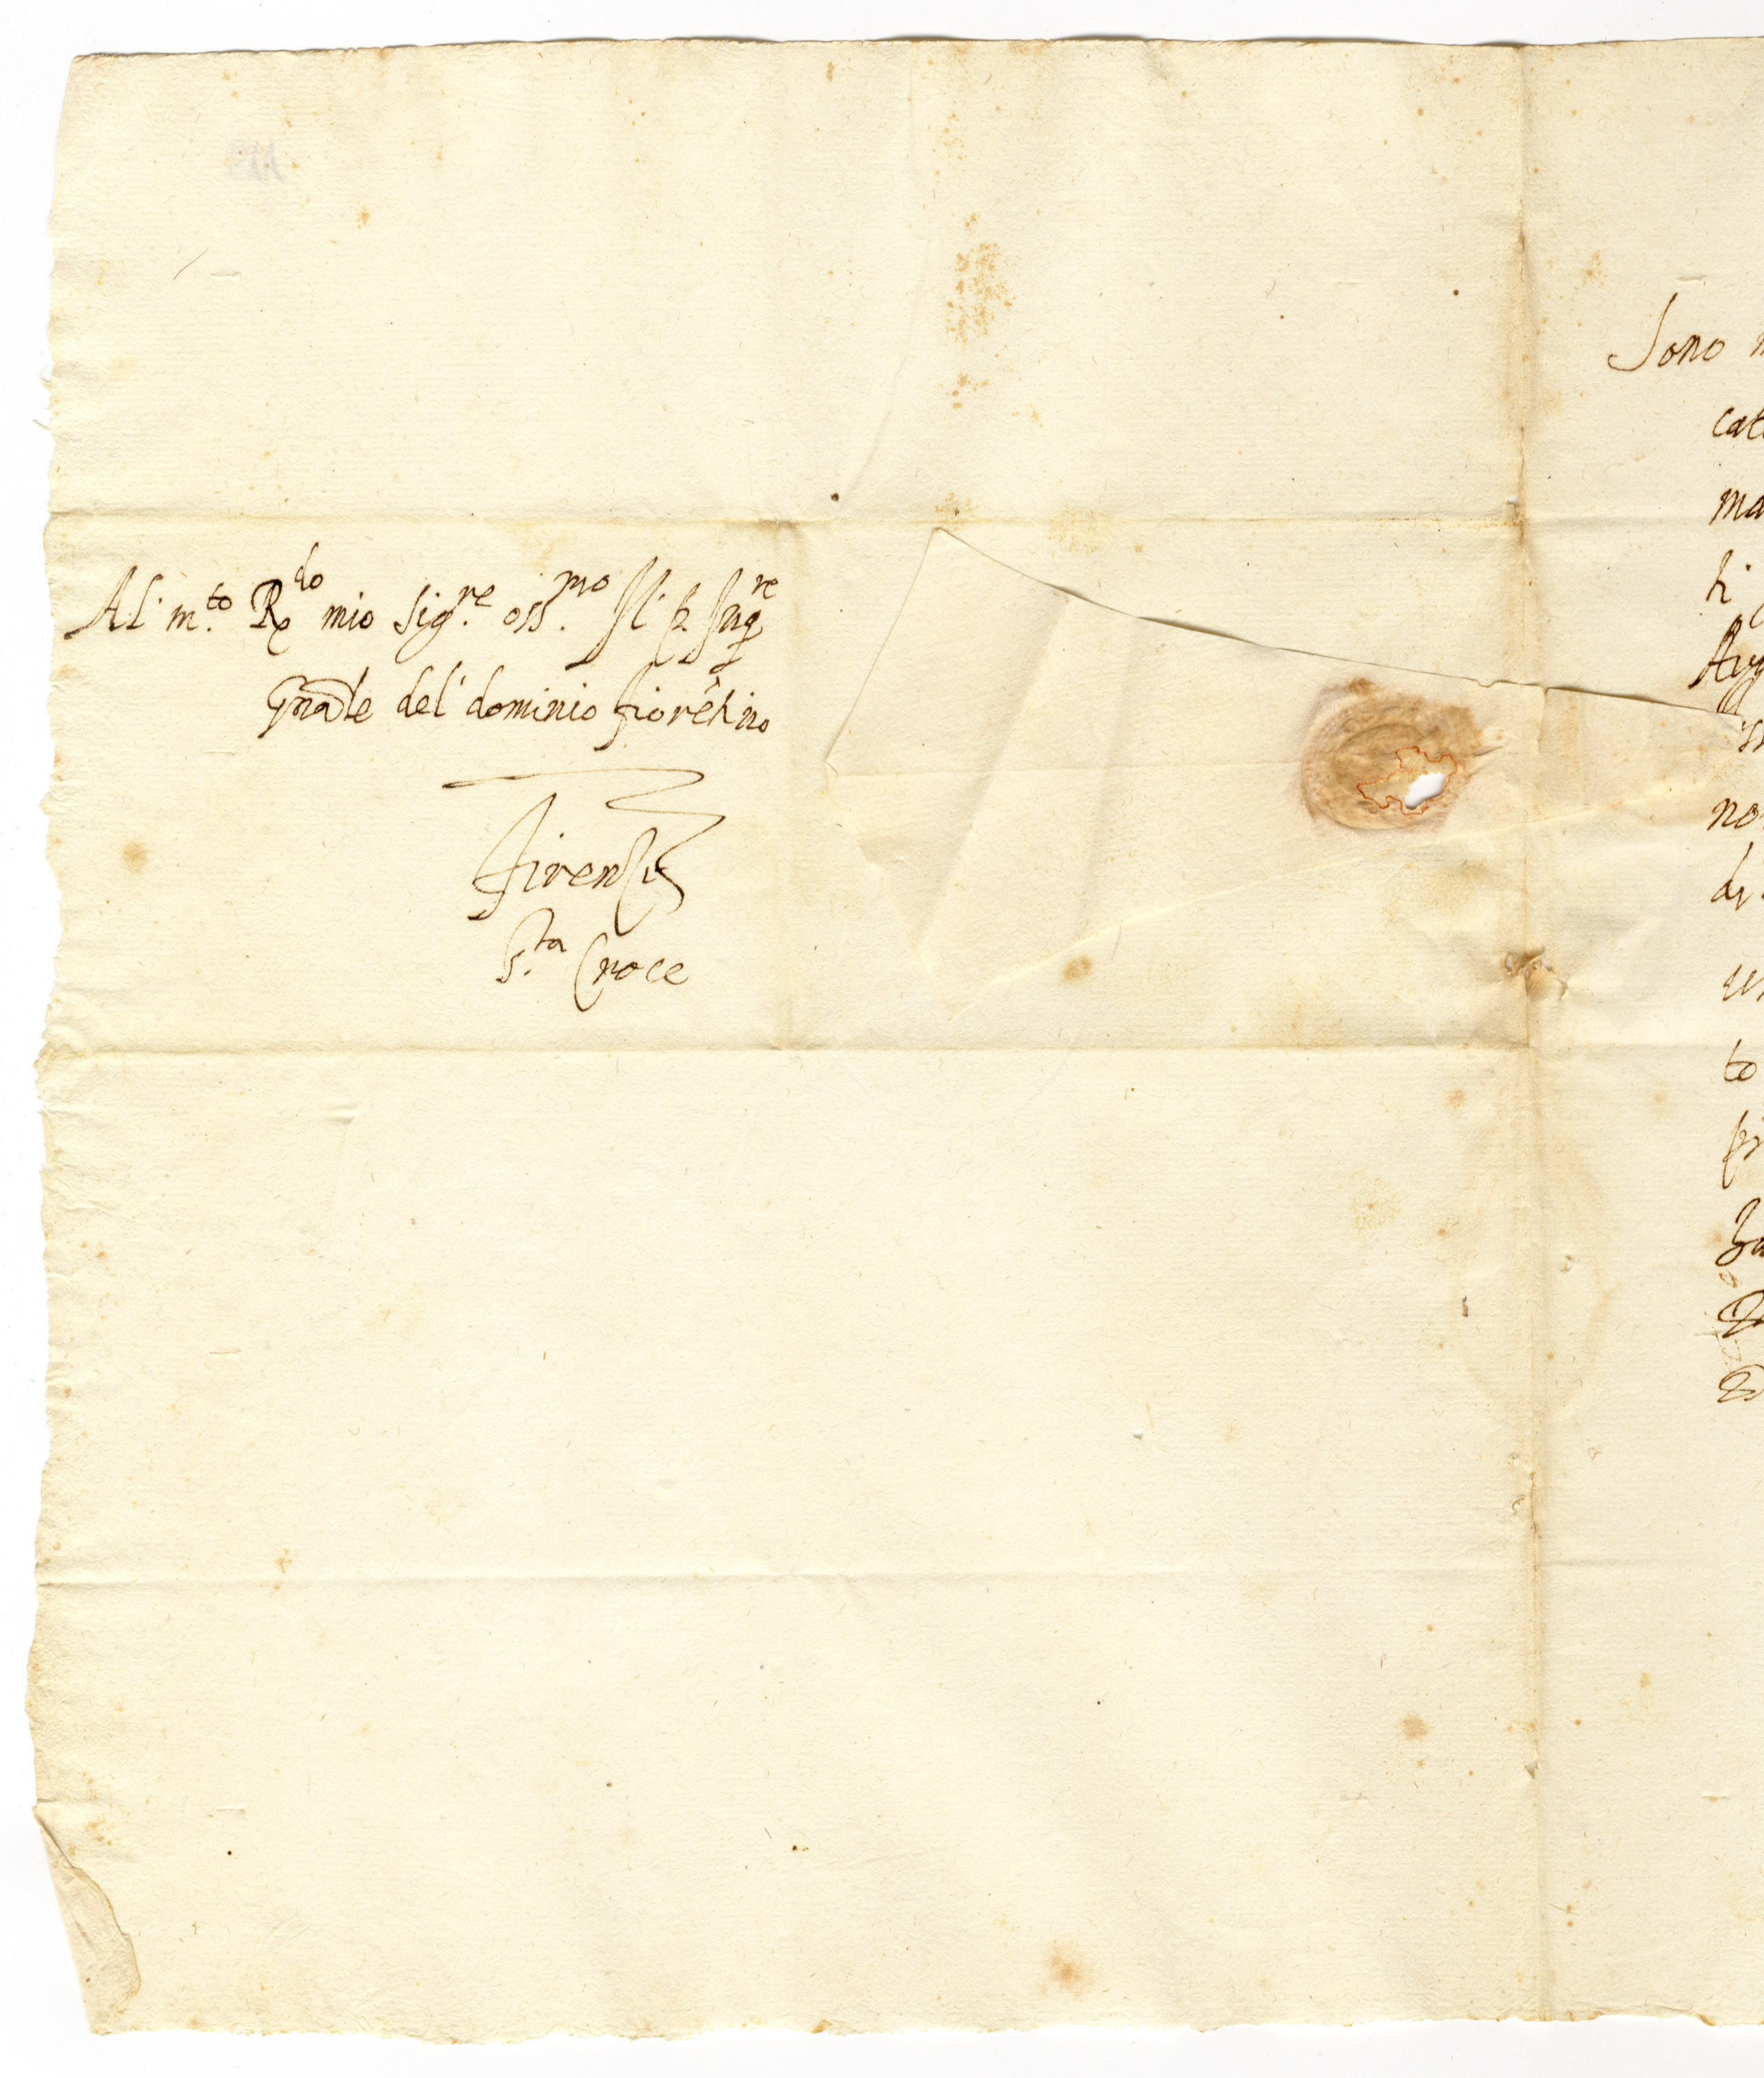 Al m.to R.do mio Sig.re oss.mo Il p. Inq.re
Gnāle del dominio fiorētino
Firenze
S.ta Croce
Sono
cat
ma
li
no
di
to